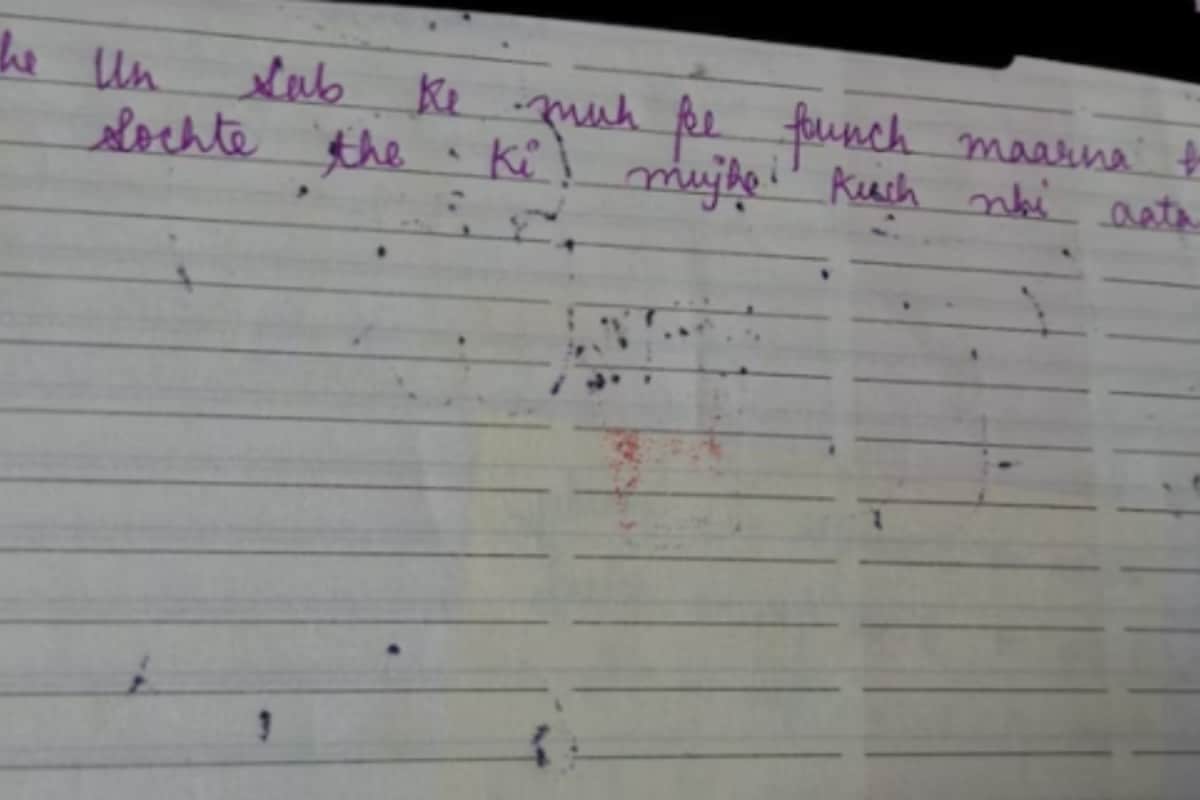 he Un sab ke muh pe punch maarna
sochte the ki mujhe kuch nhi aata